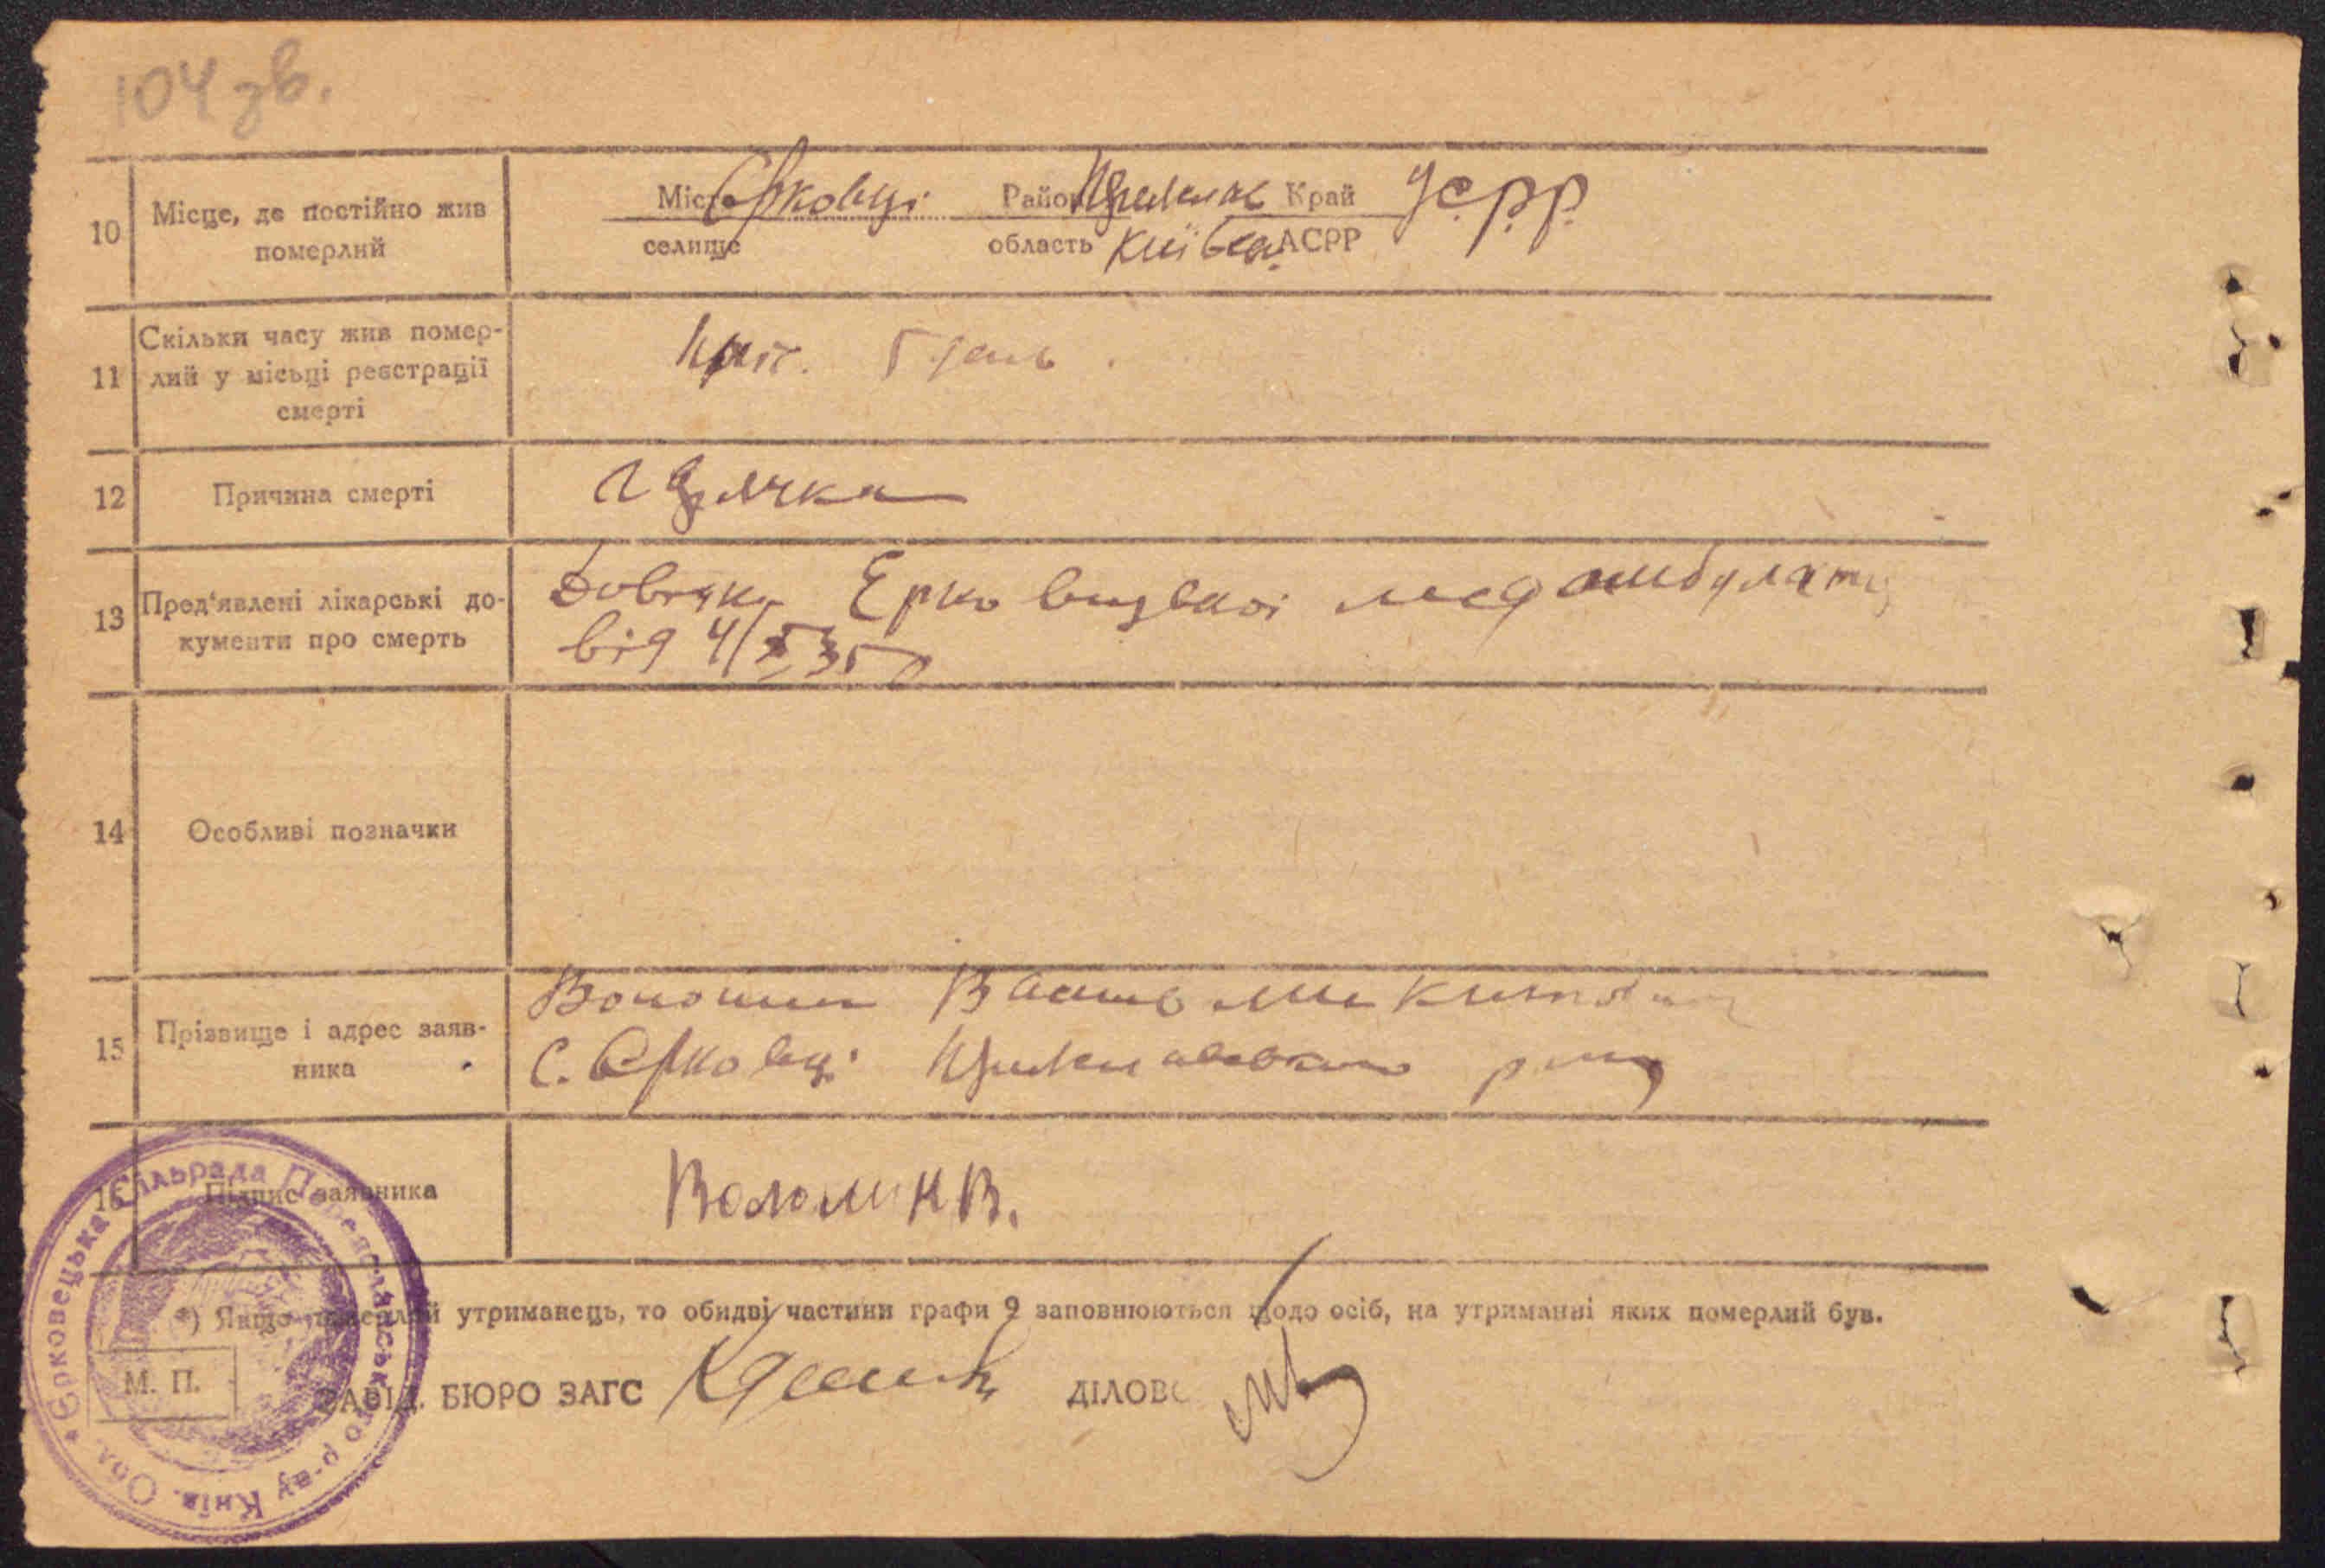 104 зв.
10 Місце, де постійно жив померлий
Місто Єрковці Район Край УСРР
селище область Київськ. АСРР
11 Скільки часу жив помер-
лий у місьці реєстрації
смерті
5 день
12 Причина смерті
13 Пред'явлені лікарські до-
кументи про смерть
Довідка Ерковецької медамбулаторії
від 4/X 35 р
14 Особливі позначки
15 Прізвище і адрес заяв-
ника
Волошин Василь Микитович
с. Єрковці району
16 Підпис заявника
Волошин В.
*) Якщо померлий утриманець, то обидві частини графи 9 заповнюються щодо осіб, на утриманні яких померлий був.
М. П.
ЗАВІД. БЮРО ЗАГС ДІЛОВ
* Єрковецька Сільрада Переяславського р-ну Київ. Обл.